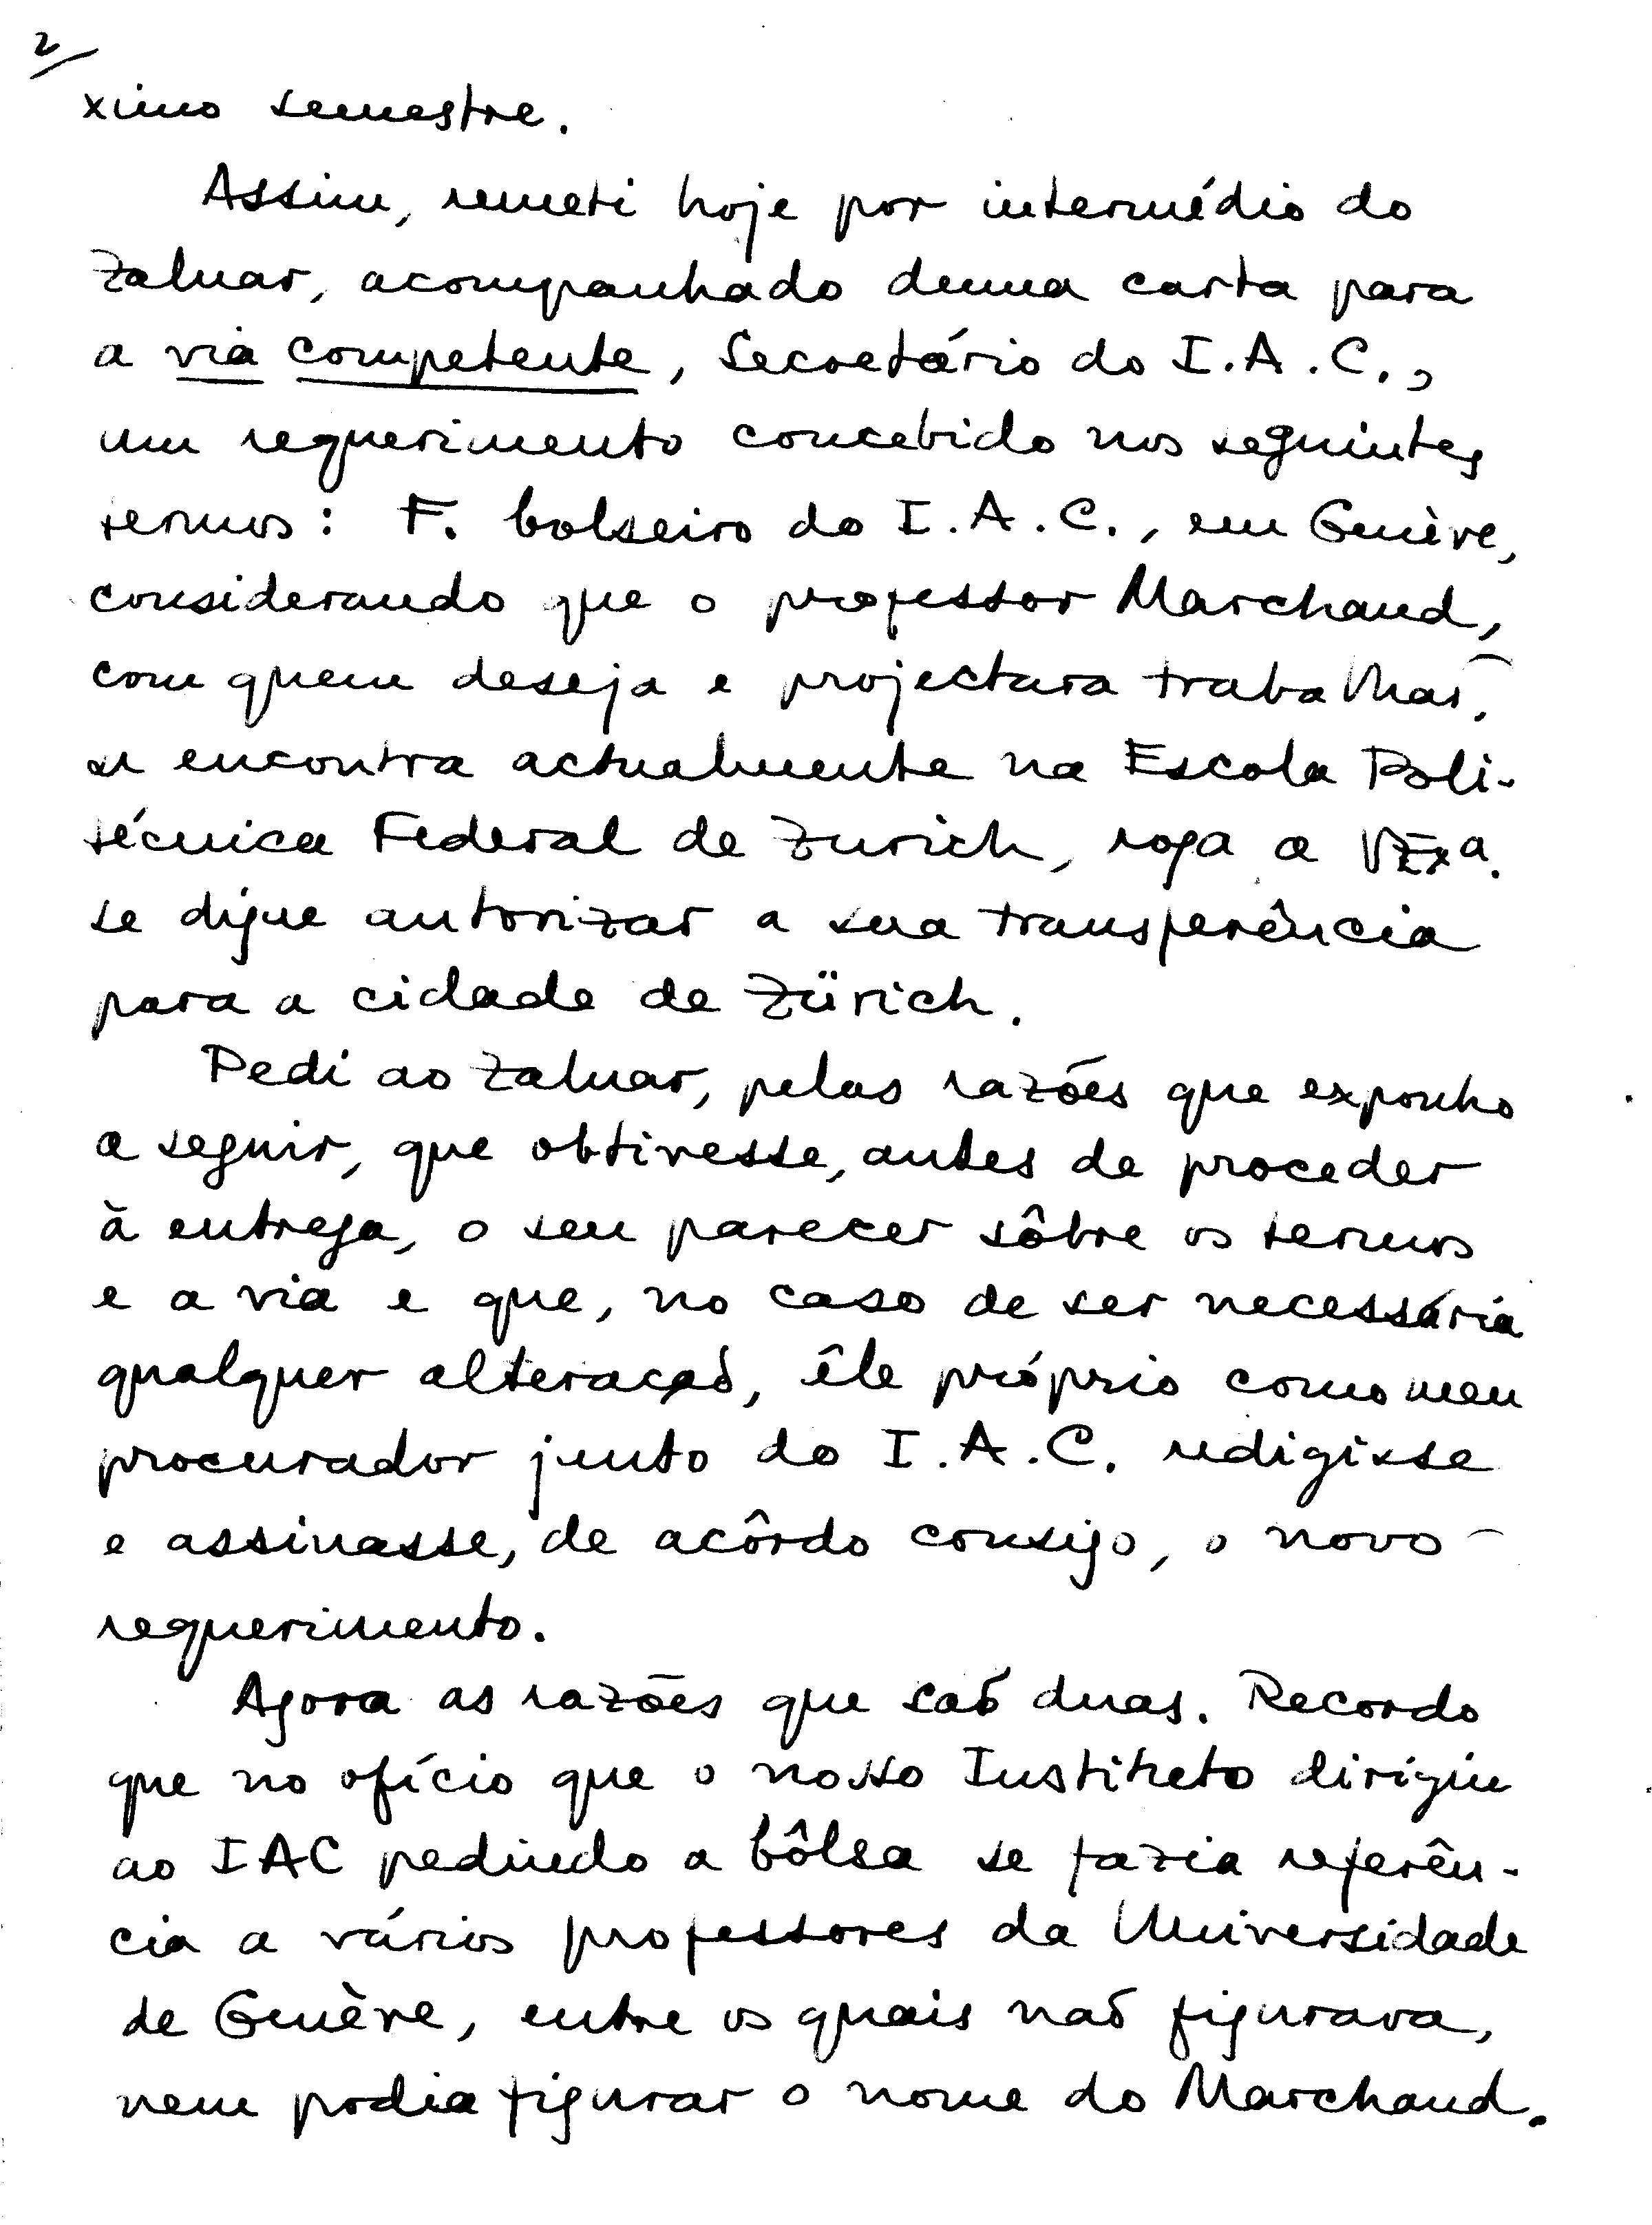 2
ximo semestre.
Assim, remeti hoje por intermédio do
Zaluar, acompanhado duma carta para
a via competente, Secretário do I.A.C.,
um requerimento concebido nos seguintes
termos: F. bolseiro do I.A.C., em Genève,
considerando que o professor Marchaud,
com quem deseja e projectara trabalhar,
se encontra actualmente na Escola Poli-
técnica Federal de Zurich, roga a V.Exa.
se digne autorizar a sua transferência
para a cidade de Zürich.
Pedi ao Zaluar, pelas razões que exponho
a seguir, que obtivesse, antes de proceder
à entrega, o seu parecer sôbre os termos
e a via e que, no caso de ser necessária
qualquer alteração, êle próprio como meu
procurador junto do I.A.C. redigisse
e assinasse, de acôrdo consigo, o novo
requerimento.
Agora as razões que são duas. Recordo
que no ofício que o nosso Instituto dirigiu
ao IAC pedindo a bôlsa se fazia referên-
cia a vários professores da Universidade
de Genève, entre os quais não figurava,
nem podia figurar o nome do Marchaud.